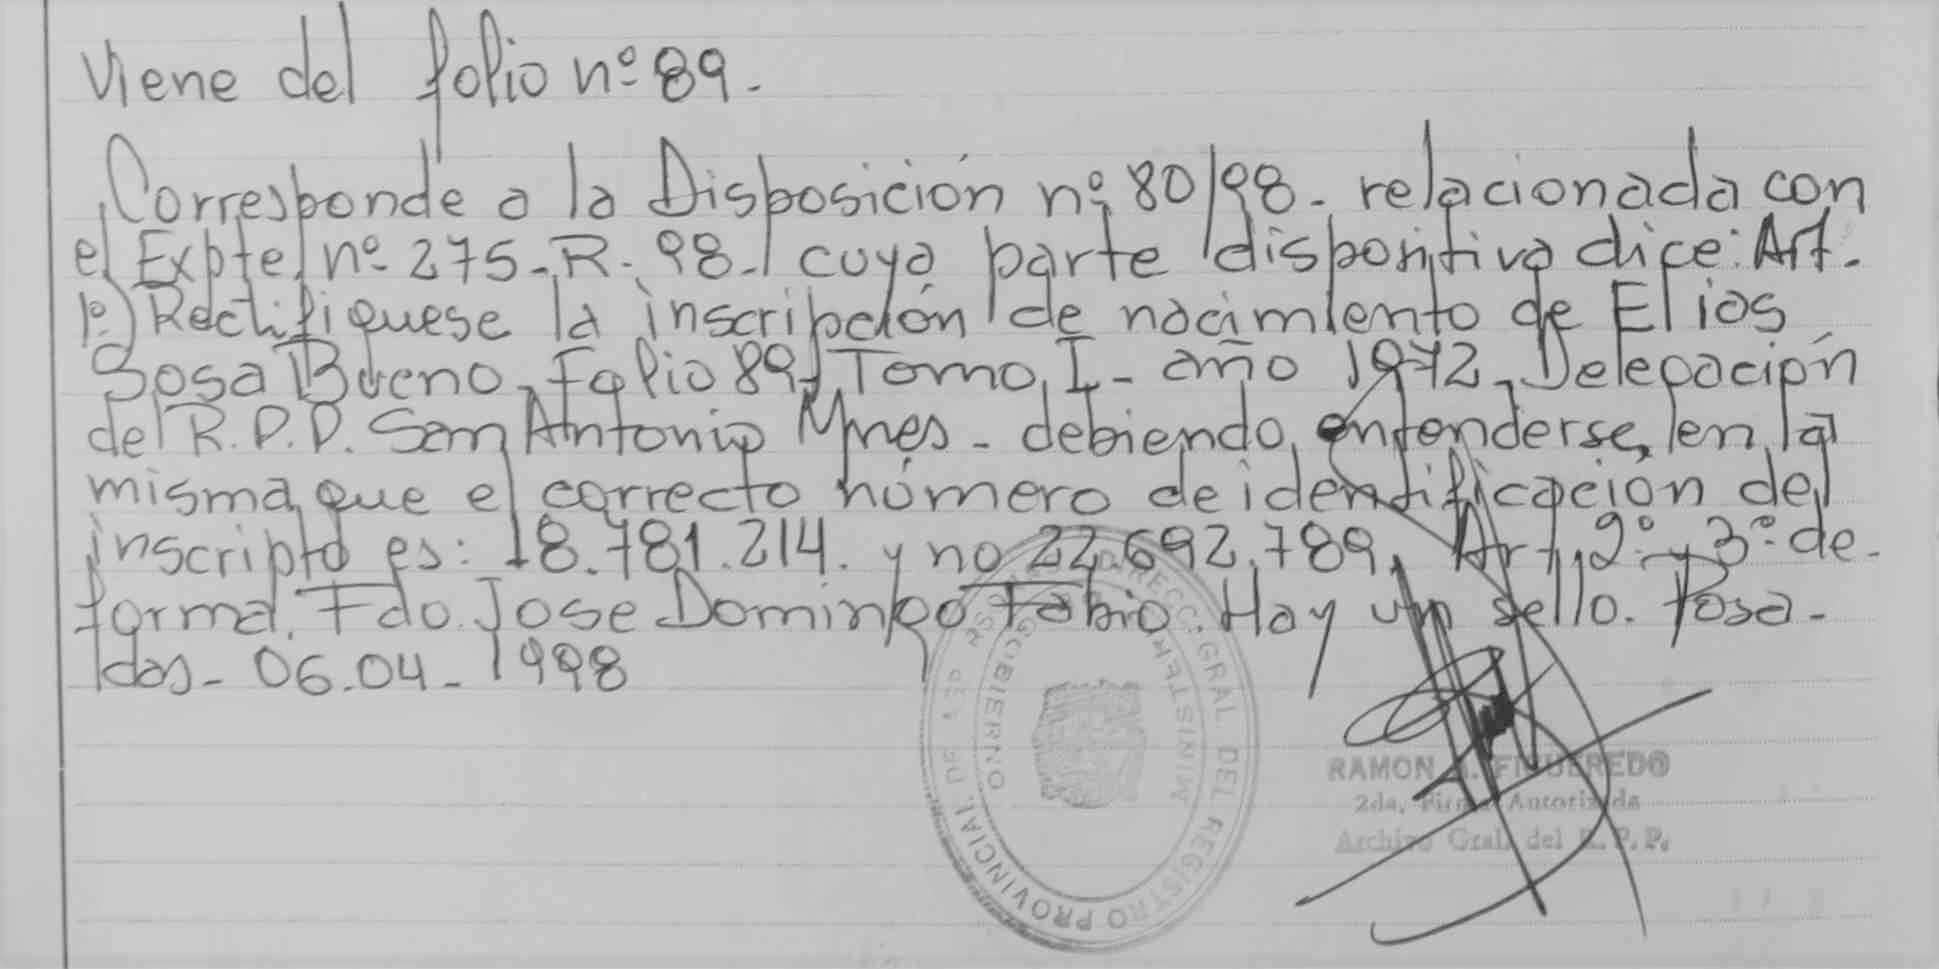 Viene del folio nº 89.
Corresponde a la Disposición nº 80/98. relacionada con
el Expte nº 275-R-98- cuya parte dispositiva dice: Art.
1º) Rectifiquese la inscripción de nacimiento de Elios
Sosa Bueno, Folio 89, Tomo I- año 1972, Delegación
del R.P.P. San Antonio Mnes- debiendo entenderse, en la
misma que el correcto número de identificacion del
inscripto es: 18.781.214. y no 22.692.789, Art. 2º y 3º de-
forma. Fdo. Jose Domingo Fabio. Hay un sello. Posa-
das- 06.04-1998
DIRECC. GRAL. DEL REGISTRO PROVINCIAL DE LAS
MINISTERIO GOBIERNO
RAMON FIGUEREDO
2da. Firma Autorizada
Archivo Gral. del R.P.P.